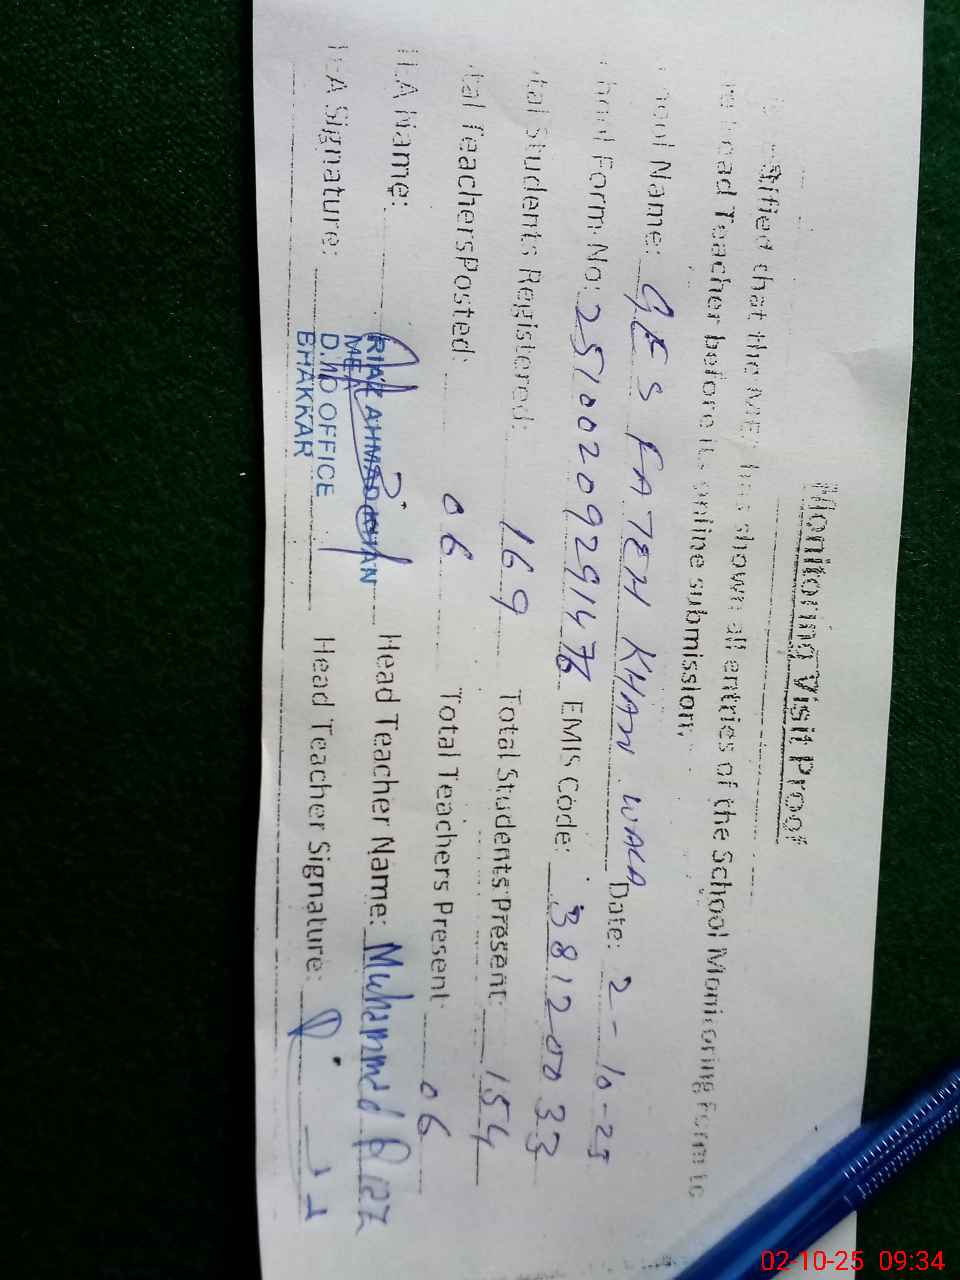 Monitoring Visit Proof
that the MEA has shown all entries of the School Monitoring Form to
Head Teacher before its online submission.
Name: GES FATEH KHAN WALA Date: 2-10-25
Form No: 2510020929147 EMIS Code: 38120033
Students Registered: 169 Total Students Present: 154
Teachers Posted: 06 Total Teachers Present 06
Name: Head Teacher Name: Muhammad
RIAZ AHMAD KHAN
MEA
D.MO OFFICE
BHAKKAR
Signature: Head Teacher Signature:
02-10-25 09:34